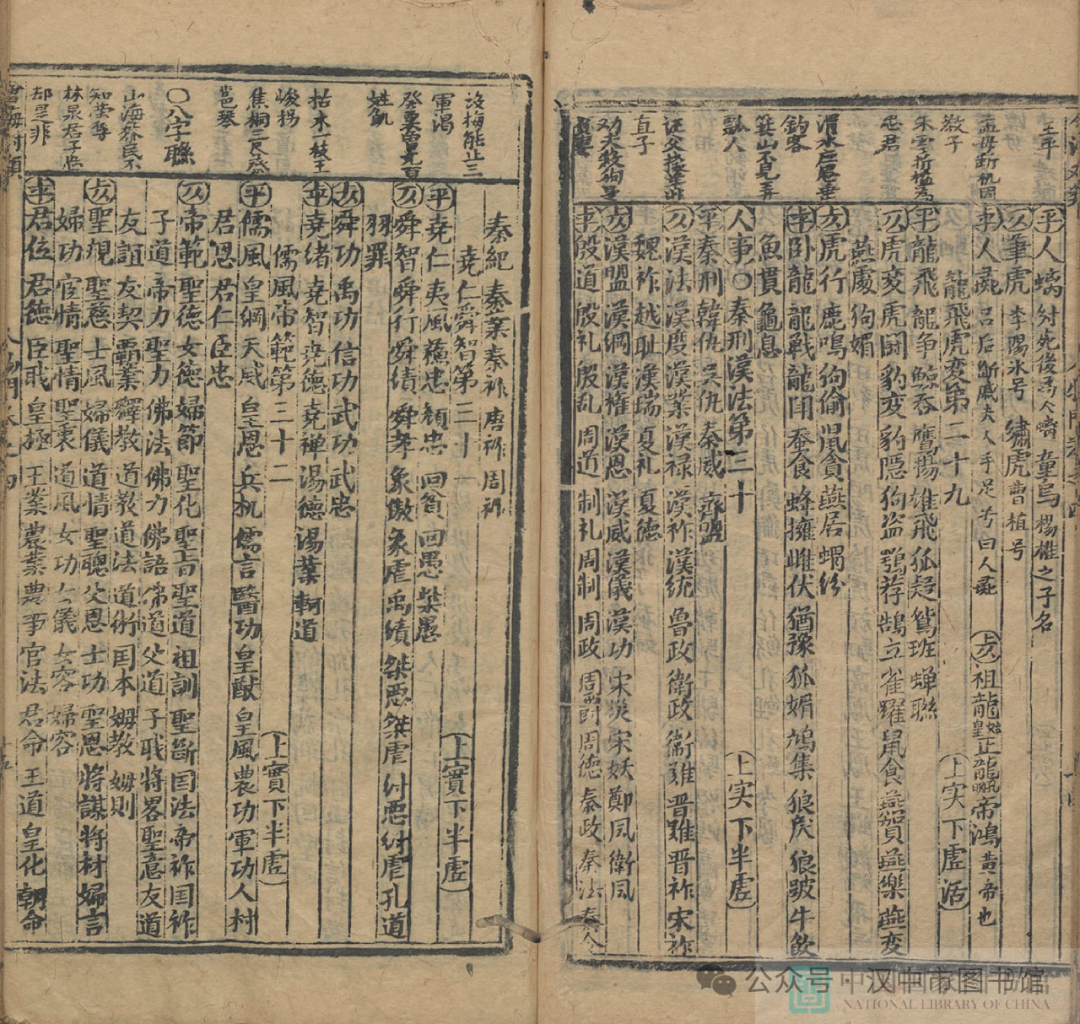 平人螭 紂先後馬人螭 童烏 楊雄之子名
仄筆虎 李陽冰号 繡虎 曹植号
平人彘 吕后断戚夫人手足号曰人彘 上仄祖龍 始皇 正龍 帝鴻 黄帝也
龍飛虎变第二十九 上实下虚活
平龍飛 龍争 鲸吞 鷹揚 雄飛 狐疑 鴛班 蝉聯
仄虎变 虎闘 豹变 豹隠 狗盗 鶚荐 鵠立 雀躍 鼠食 燕賀 燕樂 燕交
燕處 狗媚
上仄虎行 鹿鳴 狗偷 鼠貪 燕居 蝟紛
上平卧龍 龍戰 龍閗 蚕食 蜂擁 雌伏 猶豫 狐媚 鳩集 狼戾 狼跛 牛飲
魚貫 龜息
人事〇秦刑漢法第三十 上实下半虚
平秦刑 韓仇 吴仇 秦威 齊盟
仄漢法 漢度 漢業 漢禄 漢祚 漢統 魯政 衛政 衛難 晋難 晋祚 宋祚
魏祚 越恥 漢瑞 夏礼 夏德
上仄漢盟 漢綱 漢權 漢恩 漢威 漢儀 漢功 宋災 宋妖 鄭風 衛風
上平殷道 殷礼 殷乱 周道 制礼 周制 周政 周爵 周德 秦政 秦法 秦令
王平
孟母断机囙
教子
朱雲折檻為
忠君
渭水
釣客
箕山不見弄
瓢人
证父攘羊
直子
秦紀 秦業 秦祚 唐祚 周祚
尭仁舜智第三十一 上實下半虚
平尭仁 夷風 徽忠 顔忠 回貧 回愚 桀愚
仄舜智 舜行 舜績 舜孝 象傲 象虐 禹績 桀悪 桀虐 紂悪 紂虐 孔道
羽罪
上仄舜功 禹功 信功 武功 武忠
上平尭緒 尭智 尭德 尭禅 湯德 湯業 軻道
儒風帝範第三十二 上實下半虚
平儒風 皇綱 天威 皇恩 兵机 儒言 醫功 皇猷 皇風 農功 軍功 人材
君恩 君仁 臣忠
仄帝範 聖德 女德 婦節 聖化 聖旨 聖道 祖訓 聖斷 国法 帝祚 国祚
子道 帝力 聖力 佛法 佛力 佛語 佛道 父道 子職 將畧 聖意 友道
友誼 友契 霸業 釋教 道教 道法 道術 国本 姆教 姆則
上仄聖規 聖慈 士風 婦儀 道情 聖聰 父恩 士功 聖恩 將謀 將材 婦言
婦功 宦情 聖情 聖衷 道風 女功 女儀 女容 婦容
上平君位 君德 臣職 皇極 王業 農業 農事 官法 君命 王道 皇化 朝命
望梅能止三
軍渴
發粟曽見百
姓飢
枯木一枝王
峻拐
焦桐三尺蔡
邕琴
〇八字聯
山海
知榮辱
林泉君子
却是非